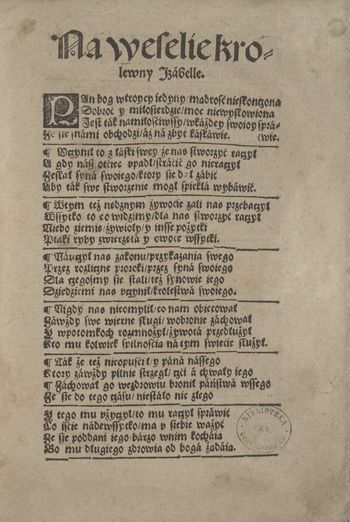 Na weselie kro⸗
lewny Jzábelle.
PAn bog wtroycy iedyny mądrość nieskończona
Dobroć y miłosierdzie / moc niewysłowiona
Jest ták namiłościwssy / wkażdey swoioy sprá⸗
Ze sie známi obchodzi / áż ná zbyt łáskáwie. (wie.
¶ Wczynił to z łáski swey że nas stworzyć raczył
A gdy náß otciec vpadł / stráćić go nieraczył
Zesłał syná swoiego / ktory sie dał zábić
Aby ták swe stworzenie mogł spiekłá wybáwić.
¶ Wtym też nędznym żywocie záli nas przebaczył
Wssytko to co widzimy / dla nas stworzyć raczył
Niebo ziemię / żywioły / y insse pożytki
Ptaki ryby zwierzętá y owoce wssytki.
¶ Náuczył nas zakonu / przykazánia swego
Przez rozliczne proroki / przez syná swoiego
Dla czegosmy sie stáli / też synowie iego
Dziedzicmi nas vczynił / krolestwá swoiego.
¶ Nigdy nas nieomylił / co nam obiecował
Záwżdy swe wierne sługi / wobronie záchował
Y wpotomkoch rozmnożył / żywotá przedłużył
Kto mu kolwiek spilnością na tym świecie służył.
¶ Ták że też nieopuścił y páná nássego
Ktory záwżdy pilnie strzegł / czci á chwały iego
¶ Záchował go wezdrowiu bronił páństwá wssego
Ze sie do tego czásu / niestáło nic złego
Y tego mu pżyczył / to mu raczył spráwić
Co iście nádewssytko / ma y siebie ważyć
Ze sie poddáni iego bárzo wnim kocháią
Bo mu długiego zdrowia od bogá żądáią.
BIBLIOTEKA